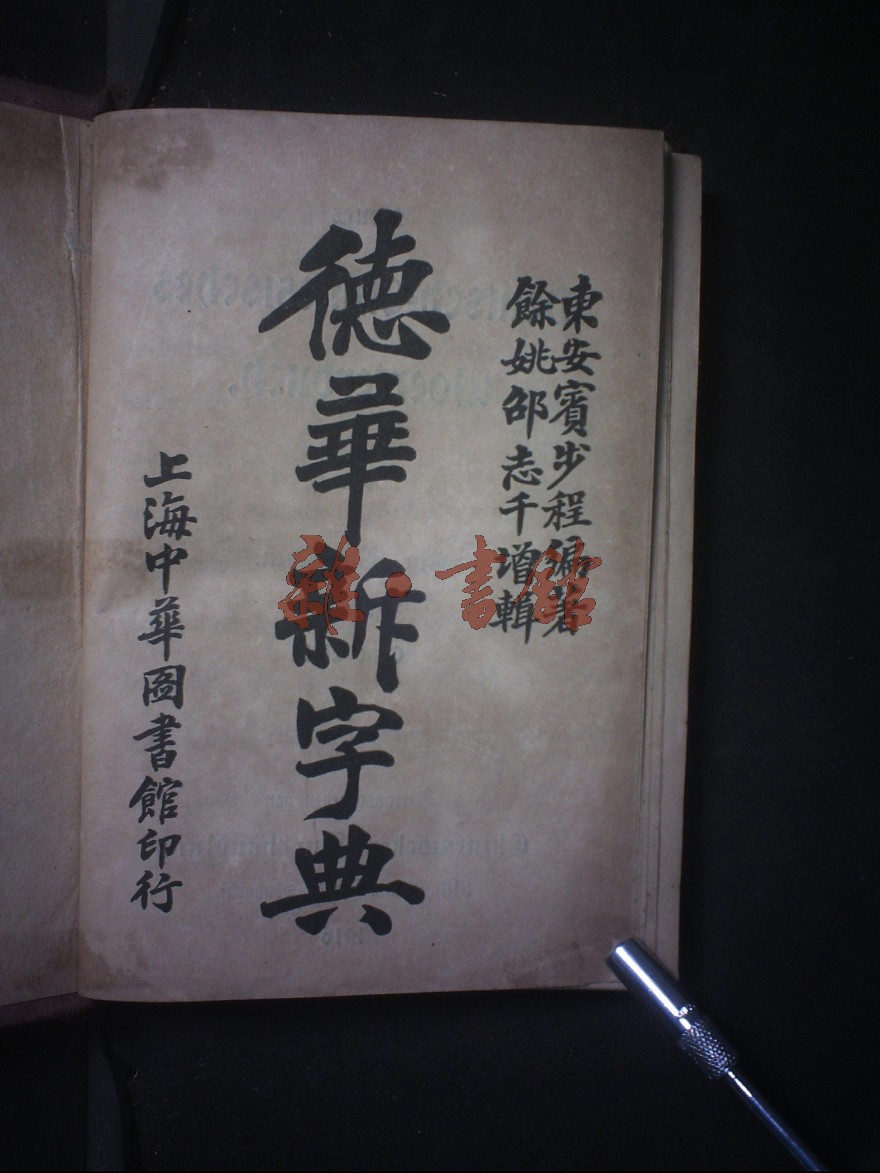 東安賓步程編著
餘姚邵志千增輯
德華新字典
上海中華圖書館印行
雜·書館